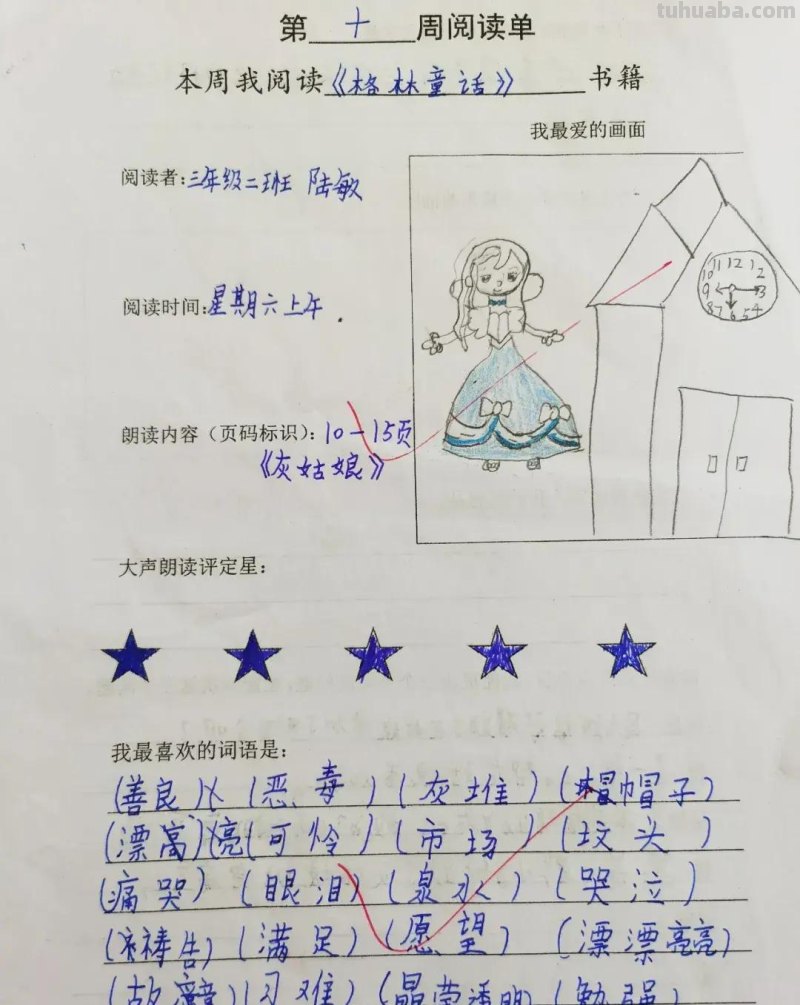 tuhuaba.com
第十周阅读单
本周我阅读《格林童话》书籍
我最爱的画面
阅读者:三年级二班 陆敏
11 12 1
10 2
9 3
8 7 6 5 4
阅读时间:星期六上午.
朗读内容（页码标识）: 10-15页
《灰姑娘》
大声朗读评定星:
我最喜欢的词语是:
(善良) (恶毒) (灰堆) (帽子)
(漂亮) (可怜) (市场) (坟头)
(痛哭) (眼泪) (泉水) (哭泣)
(祷告) (满足) (愿望) (漂漂亮亮)
(刁难) (晶莹透明) (勉强)